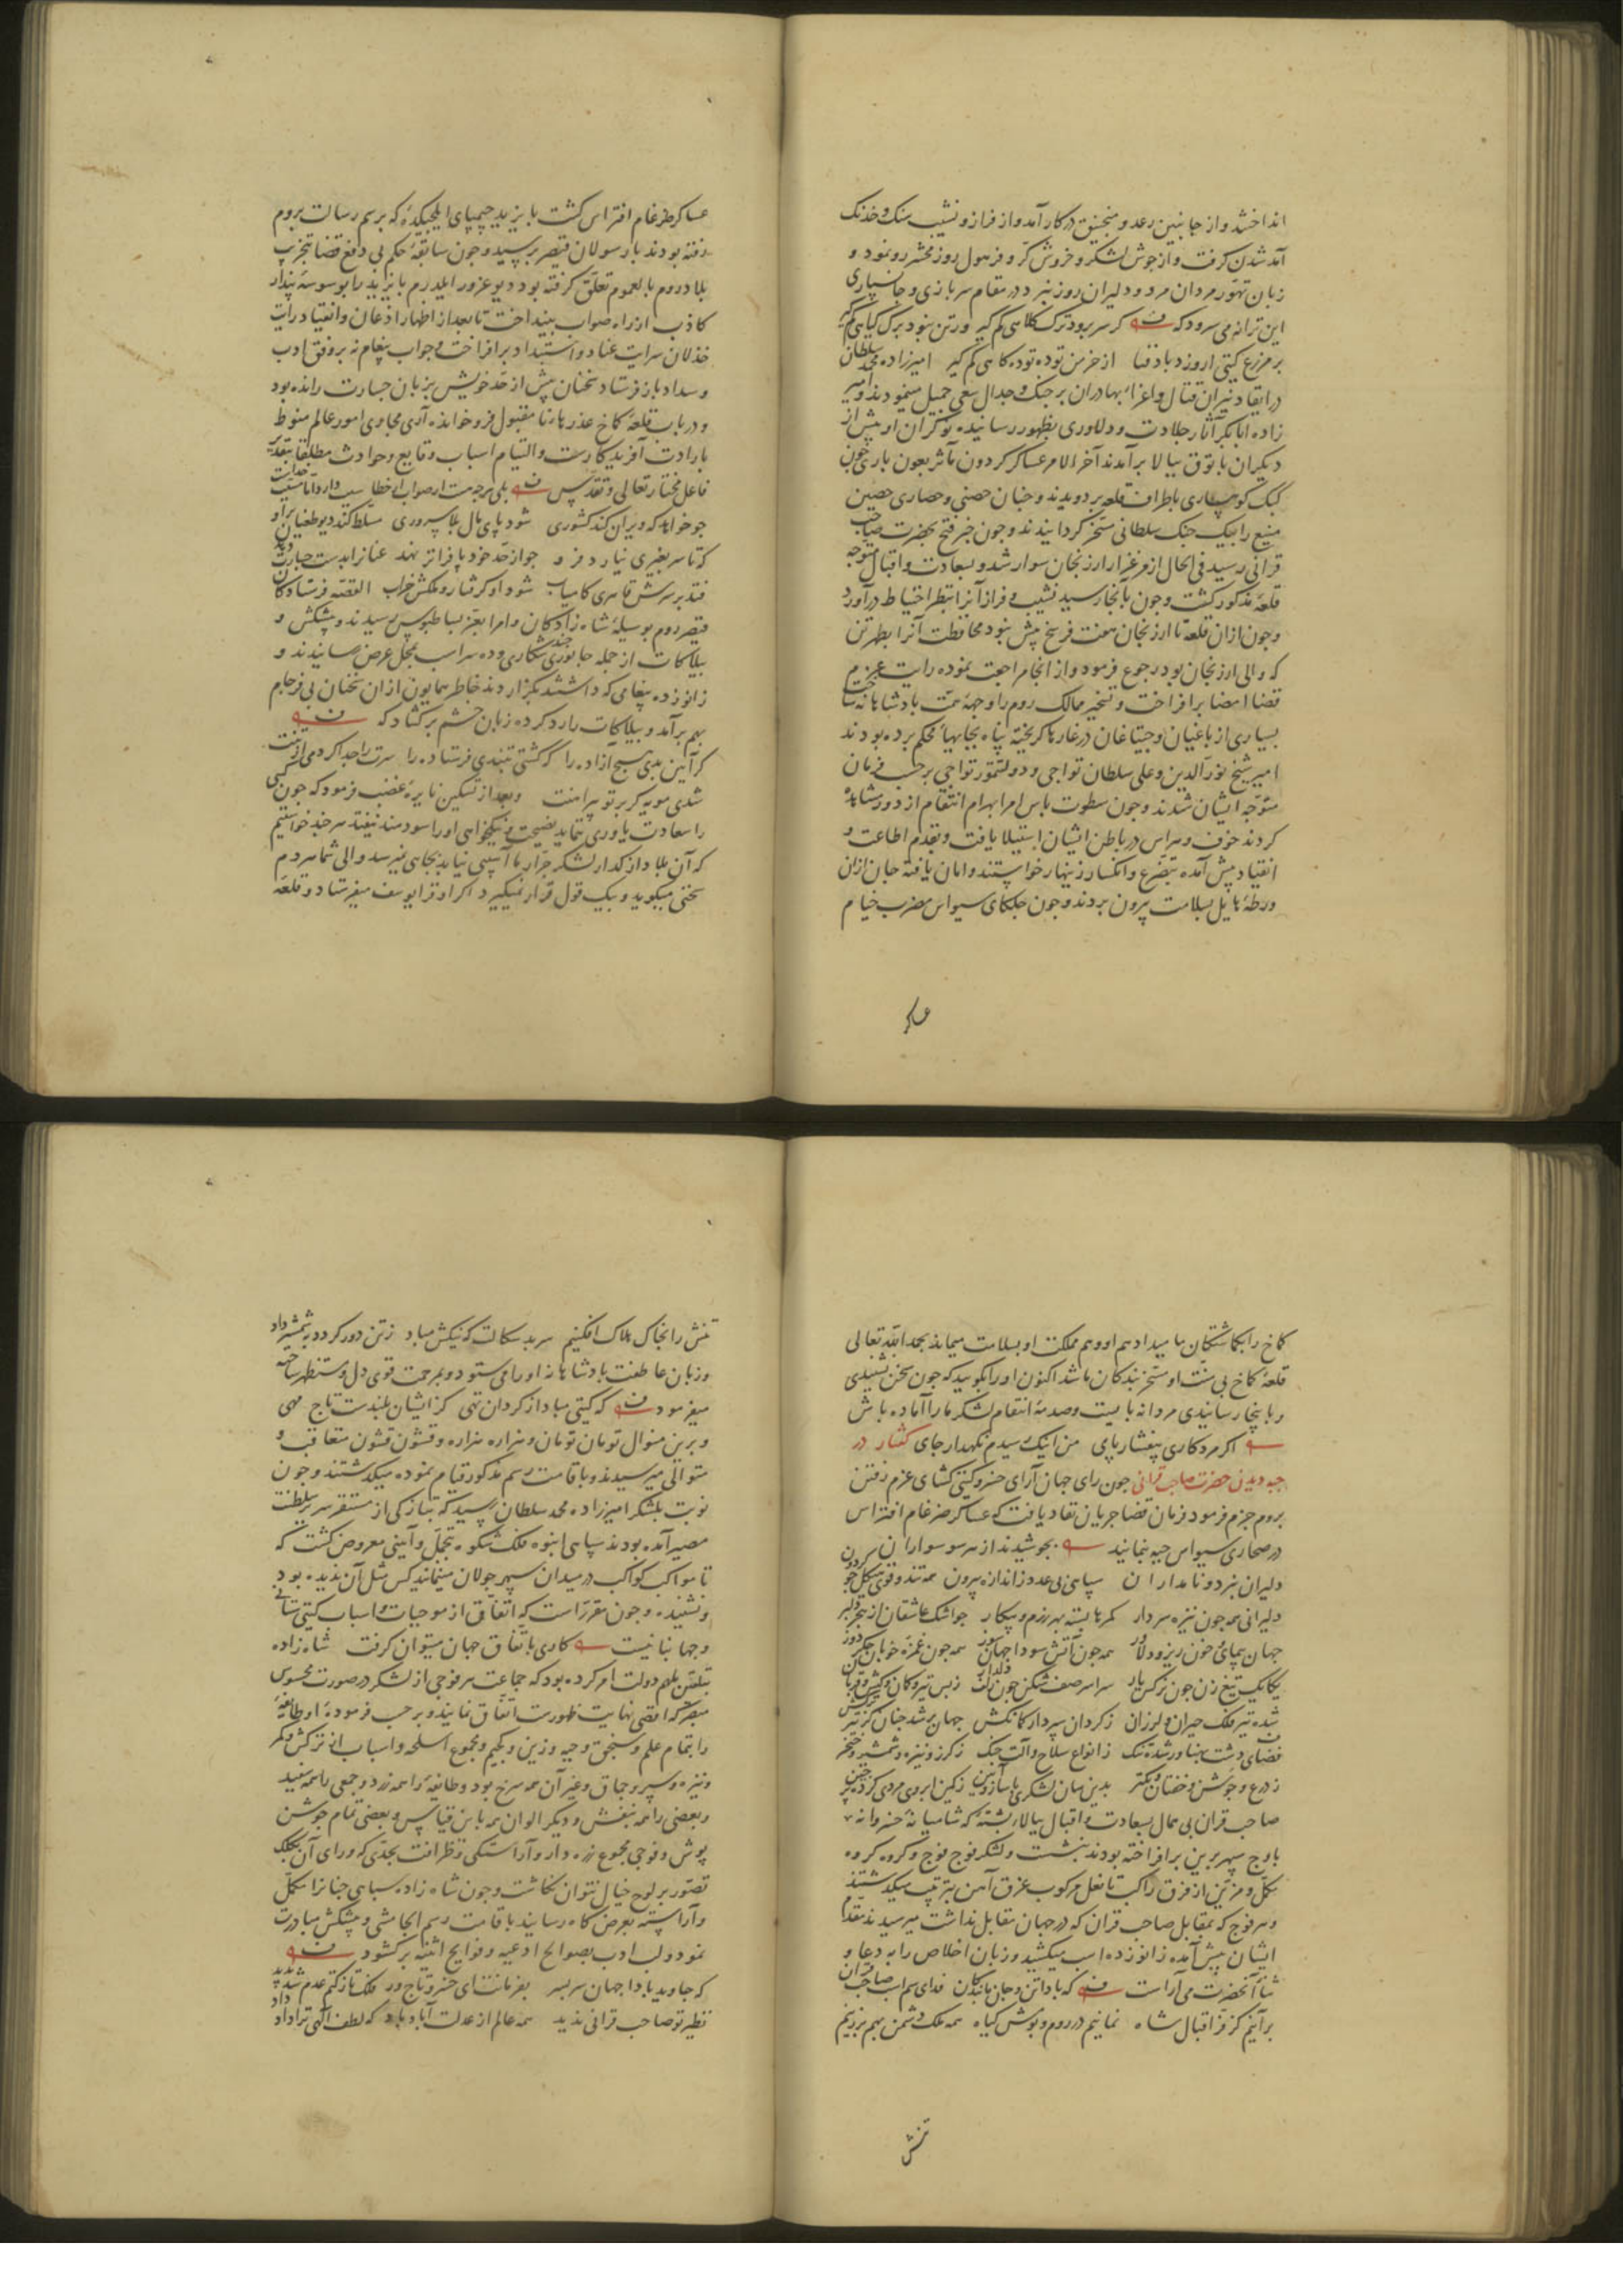 انداختند و از جانبین رعد و منجنیق در کار آمد و از فراز و نشیب سنک و خدنک
آمد شدن کرفت و از جوش لشکر و خروش کر و فر هول روز محشر رو نمود و
زبان تهور مردان مرد و دلیران روز نبرد در مقام سربازی و جان سپاری
این ترانه می سرود که کر سر برود ترک کلاهی کم کیر ور تن نبود برک کیاهی کم کیر
بر مزرع کیتی ار وزد باد فنا از خرمن توده توده کاهی کم کیر امیرزاده محمد سلطان
در ایقاد نیران قتال و اغراء بهادران بر جنک و جدال سعی جمیل مینمودند و امیر
زاده ابابکر آثار جلادت و دلاوری بظهور رسانیده نوکران او پیش از
دیکران با توق ببالا برآمدند آخر الامر عساکر کردون مآثر بعون باری چون
کبک کوهساری باطراف قلعه بر دویدند و چنان حصنی و حصاری حصین
منیع را بیک جنک سلطانی مسخر کردانیدند و چون خبر فتح بحضرت صاحب
قرانی رسید فی الحال از مرغزار ارزنجان سوار شد و بسعادت و اقبال متوجه
قلعه مذکور کشت و چون بآنجا رسید نشیب و فراز آنرا بنظر احتیاط درآورد
و چون ازان قلعه تا ارزنجان هفت فرسخ بیش نبود محافظت آنرا بطهرتن
که والی ارزنجان بود رجوع فرمود و از انجا مراجعت نموده رایت عزم
قضا امضا برافراخت و تسخیر ممالک روم را وجهه همت پادشاهانه ساخت
بسیاری از باغیان و جیتاغان در غارها کریخته پناه بجایهاء محکم برده بودند
امیر شیخ نورالدین و علی سلطان تواجی و دولتمور تواجی بر حسب فرمان
متوجه ایشان شدند و چون سطوت باس امراء بهرام انتقام از دور مشاهده
کردند خوف و هراس در باطن ایشان استیلا یافت و بقدم اطاعت و
انقیاد پیش آمده بتضرع و انکسار زنهار خواستند و امان یافته جان ازان
ورطه هایل بسلامت بیرون بردند و چون جلکای سیواس مضرب خیام
عساکر
عساکر ضرغام افتراس کشت بایزید چیمپای ایلچیکده که برسم رسالت بروم
رفته بودند با رسولان قیصر برسید و چون سابقه حکم بی دفع قضا بتخریب
بلاد روم بالعموم تعلق کرفته بود دیو غرور ایلدرم بایزید را بوسوسه پندار
کاذب از راه صواب بینداخت تا بعد از اظهار اذعان و انقیاد رایت
خذلان سرایت عناد و استبداد برافراخت و جواب پیغام نه بر وفق ادب
و سداد باز فرستاد سخنان بیش از حد خویش بر زبان جسارت رانده بود
و در باب قلعه کاخ عذرهاء نامقبول فرو خوانده آری مجاری امور عالم منوط
بارادت آفریدکارست و التیام اسباب وقایع و حوادث مطلقا بتقدیر
فاعل مختار تعالی و تقدس بلی هرچه هست از صواب از خطا سبب دارد اما مسبب خداست
چو خواهد که ویران کند کشوری شود پای مال بلا سروری مسلط کند دیو طغیان براو
که تا سر بغیری نیارد فرو چو از حد خود پا فراتر نهد عنانرا بدست جسارت دهد
فتد بر سرش قاهری کامیاب شود او کرفتار و ملکش خراب القصه فرستادکان
قیصر روم بوسیله شاه زادکان و امرا بعز بساط بوس رسیدند و پیشکش و
بیلاکات از جمله جانوری چند شکاری و ده سر اسب بمحل عرض رسانیدند و
زانو زده پیغامی که داشتند بکزاردند خاطر همایون ازان سخنان بی فرجام
بهم برآمد و بیلاکات را رد کرده زبان خشم برکشاد که
کر آیین بدی هیچ آزاده را که کشتی تبندی فرستاده را سرت را جدا کردمی از تنت
شدی مویه کر بر تو پیراهنت و بعد از تسکین نایره غضب فرمود که چون کسی
را سعادت یاوری ننماید نصیحت و نیکخواهی او را سودمند نیفتد هر چند خواستیم
که آن بلاد از کذار لشکر جرار ما آسیبی نیابد بجای نمیرسد والی شما هر دم
سخنی میکوید و بیک قول قرار نمیکیرد اکر او قرایوسف میفرستاد و قلعه
کاخ را بکماشتکان ما میداد هم او و هم مملکت او بسلامت میماند بحمد الله تعالی
قلعه کاخ بی منت او مسخر بندکان ما شد اکنون او را بکویید که چون سخن نشنیدی
و با ینجا رسانیدی مردانه بایست و صدمه انتقام لشکر ما را آماده باش
اکر مرد کاری بیفشار پای من اینک رسیدم نکهدار جای کفتار در
جیبه دیدن حضرت صاحب قرانی چون رای جهان آرای خسرو کیتی کشای عزم رفتن
بروم جزم فرمود فرمان قضا جریان نفاذ یافت که عساکر ضرغام افتراس
در صحاری سیواس جیبه نمایند بجوشیدند از هر سو سواران
دلیران نبرد و نامداران سپاهی بی عدد ز اندازه بیرون همه تند و قوی هیکل چو کردون
دلیرانی همه چون نیزه سردار کمرها بسته بهر رزم و پیکار چو اشک عاشقان از هجر دلبر
جهان پیمای خون ریز و دلاور همه چون آتش سودا جهان سوز همه چون غمزه خوبان جکر دوز
یکایک تیغ زن چون نرکس یار سراسر صف شکن چون زلف دلدار ز بس تیر و کمان و کیش و قربان
شده تیر فلک حیران و لرزان ز کردان سپردار کمانکش جهان پر شد چنان کز تیر ترکش
فضای دشت پهناور شده تنک ز انواع سلاح و آلت جنک ز کرز و نیزه و شمشیر و خنجر
ز درع و جوشن و خفتان و بکتر بدین سان لشکری با ساز و آیین ز کین ابروی مردی کرده پر چین
صاحب قران بی همال بسعادت و اقبال ببالاء پشته که شامیانه خسروانه
باوج سپهر برین برافراخته بودند بنشست و لشکر فوج فوج و کروه کروه
مکمل و مزین از فرق راکب تا نعل مرکوب غرق آهن بترتیب میکذشتند
و هر فوج که بمقابل صاحب قران که در جهان مقابل نداشت میرسیدند مقدم
ایشان پیش آمده زانو زده اسب میکشید و زبان اخلاص را بدعا و
ثناء آنحضرت می آراست که بادا تن و جان ما بندکان فدای سم اسب صاحب قران
برآنیم کز فر اقبال شاه نمانیم در روم و بومش کیاه همه ملک دشمن بهم برزنیم
تنش
تنش را بخاک هلاک افکنیم سر بد سکالت که نیکش مباد ز تن دور کردد بشمشیر داد
و زبان عاطفت پادشاهانه او را می ستود و بمرحمت قوی دل و مستظهر ساخته
میفرمود که کیتی مباد از کردان تهی کز ایشان بلندست تاج مهی
و برین منوال تومان تومان و هزاره هزاره و قشون قشون متعاقب و
متوالی میرسیدند و باقامت رسم مذکور قیام نموده میکذشتند و چون
نوبت بلشکر امیرزاده محمد سلطان رسید که بتازکی از مستقر سریر سلطنت
مصیر آمده بودند سپاهی انبوه فلک شکوه بتجمل و آیینی معروض کشت که
تا مواکب کواکب در میدان سپهر جولان مینمایند کس مثل آن ندیده بود
و نشنیده و چون مقررست که اتفاق از موجبات و اسباب کیتی ستانی
و جهانبانیست کاری باتفاق جهان میتوان کرفت شاه زاده
بتلقین ملهم دولت امر کرده بود که جماعت هر فوجی از لشکر در صورت محسوس
مبصر که اقصی نهایت ظهورست اتفاق نمایند و بر حسب فرموده او طایفه
را بتمام علم و سنجق و جیبه و زین و کجیم و مجموع اسلحه و اسباب از ترکش و کمر
و نیزه و سپر و جماق و غیر آن همه سرخ بود و طایفه را همه زرد و جمعی را همه سفید
و بعضی را همه بنفش و دیکر الوان همه باین قیاس و بعضی تمام جوشن
پوش و فوجی مجموع زره دار و آراستکی و ظرافت بحدی که ورای آن بکلک
تصور بر لوح خیال نتوان نکاشت و چون شاه زاده سپاهی چنانرا مکمل
و آراسته بعرض کاه رسانید باقامت رسم الجامشی و پیشکش مبادرت
نمود و لب ادب بصوالح ادعیه و فوایح اثنیه برکشود
که جاوید بادا جهان سر بسر بفرمانت ای خسرو تاج ور فلک تا ز کتم عدم شد پدید
نظیر تو صاحب قرانی ندید همه عالم از عدلت آباد باد که لطف الهی ترا داد داد